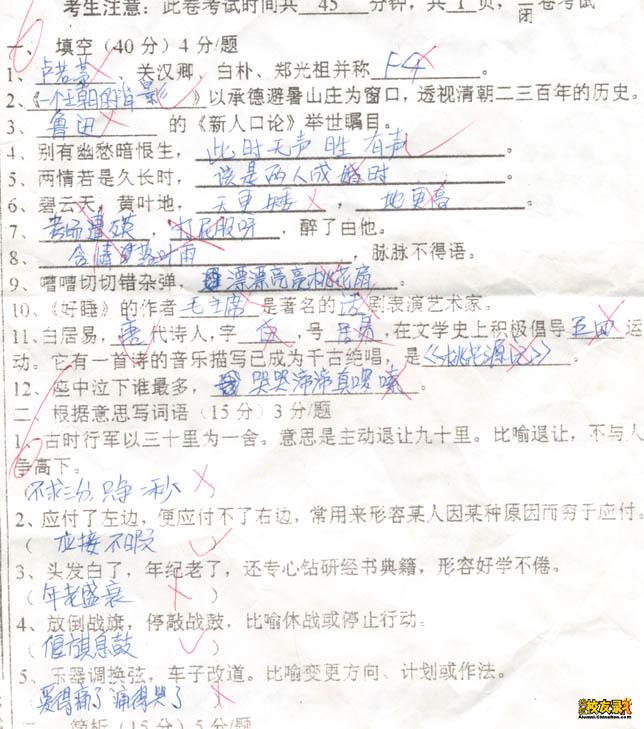 考生注意：此卷考试时间共 45 分钟，共 1 页，闭卷考试
一、填空（40分）4分/题
1、卢若葶、关汉卿、白朴、郑光祖并称 F4 。
2、《一个王朝的背影》以承德避暑山庄为窗口，透视清朝二三百年的历史。
3、鲁迅 的《新人口论》举世瞩目。
4、别有幽愁暗恨生， 此时无声胜有声 。
5、两情若是久长时， 该是两人成婚时 。
6、碧云天，黄叶地， 天更矮 ， 地更高 。
7、考场遭殃 ， 打屁股呀 ，醉了由他。
8、 含情 叶雨 ，脉脉不得语。
9、嘈嘈切切错杂弹， 漂漂亮亮桃花扇 。
10、《好睡》的作者毛主席 是著名的话剧表演艺术家。
11、白居易，唐代诗人，字 白 ，号 居易 ，在文学史上积极倡导五四运
动。它有一首诗的音乐描写已成为千古绝唱，是《桃花源记》。
12、座中泣下谁最多， 哭哭啼啼真啰嗦 。
二 根据意思写词语（15分）3分/题
1、古时行军以三十里为一舍。意思是主动退让九十里。比喻退让，不与人
争高下。
（不求三分只争二秒 ）
2、应付了左边，便应付不了右边，常用来形容某人因某种原因而穷于应付。
（ 应接不暇 ）
3、头发白了，年纪老了，还专心钻研经书典籍，形容好学不倦。
（年老盛衰 ）
4、放倒战旗，停敲战鼓，比喻休战或停止行动。
（偃旗息鼓 ）
5、乐器调换弦，车子改道。比喻变更方向、计划或作法。
爱得痛了痛得哭了 ）
简析（15分）5分/题
校友录
Alumni.ChinaRen.com